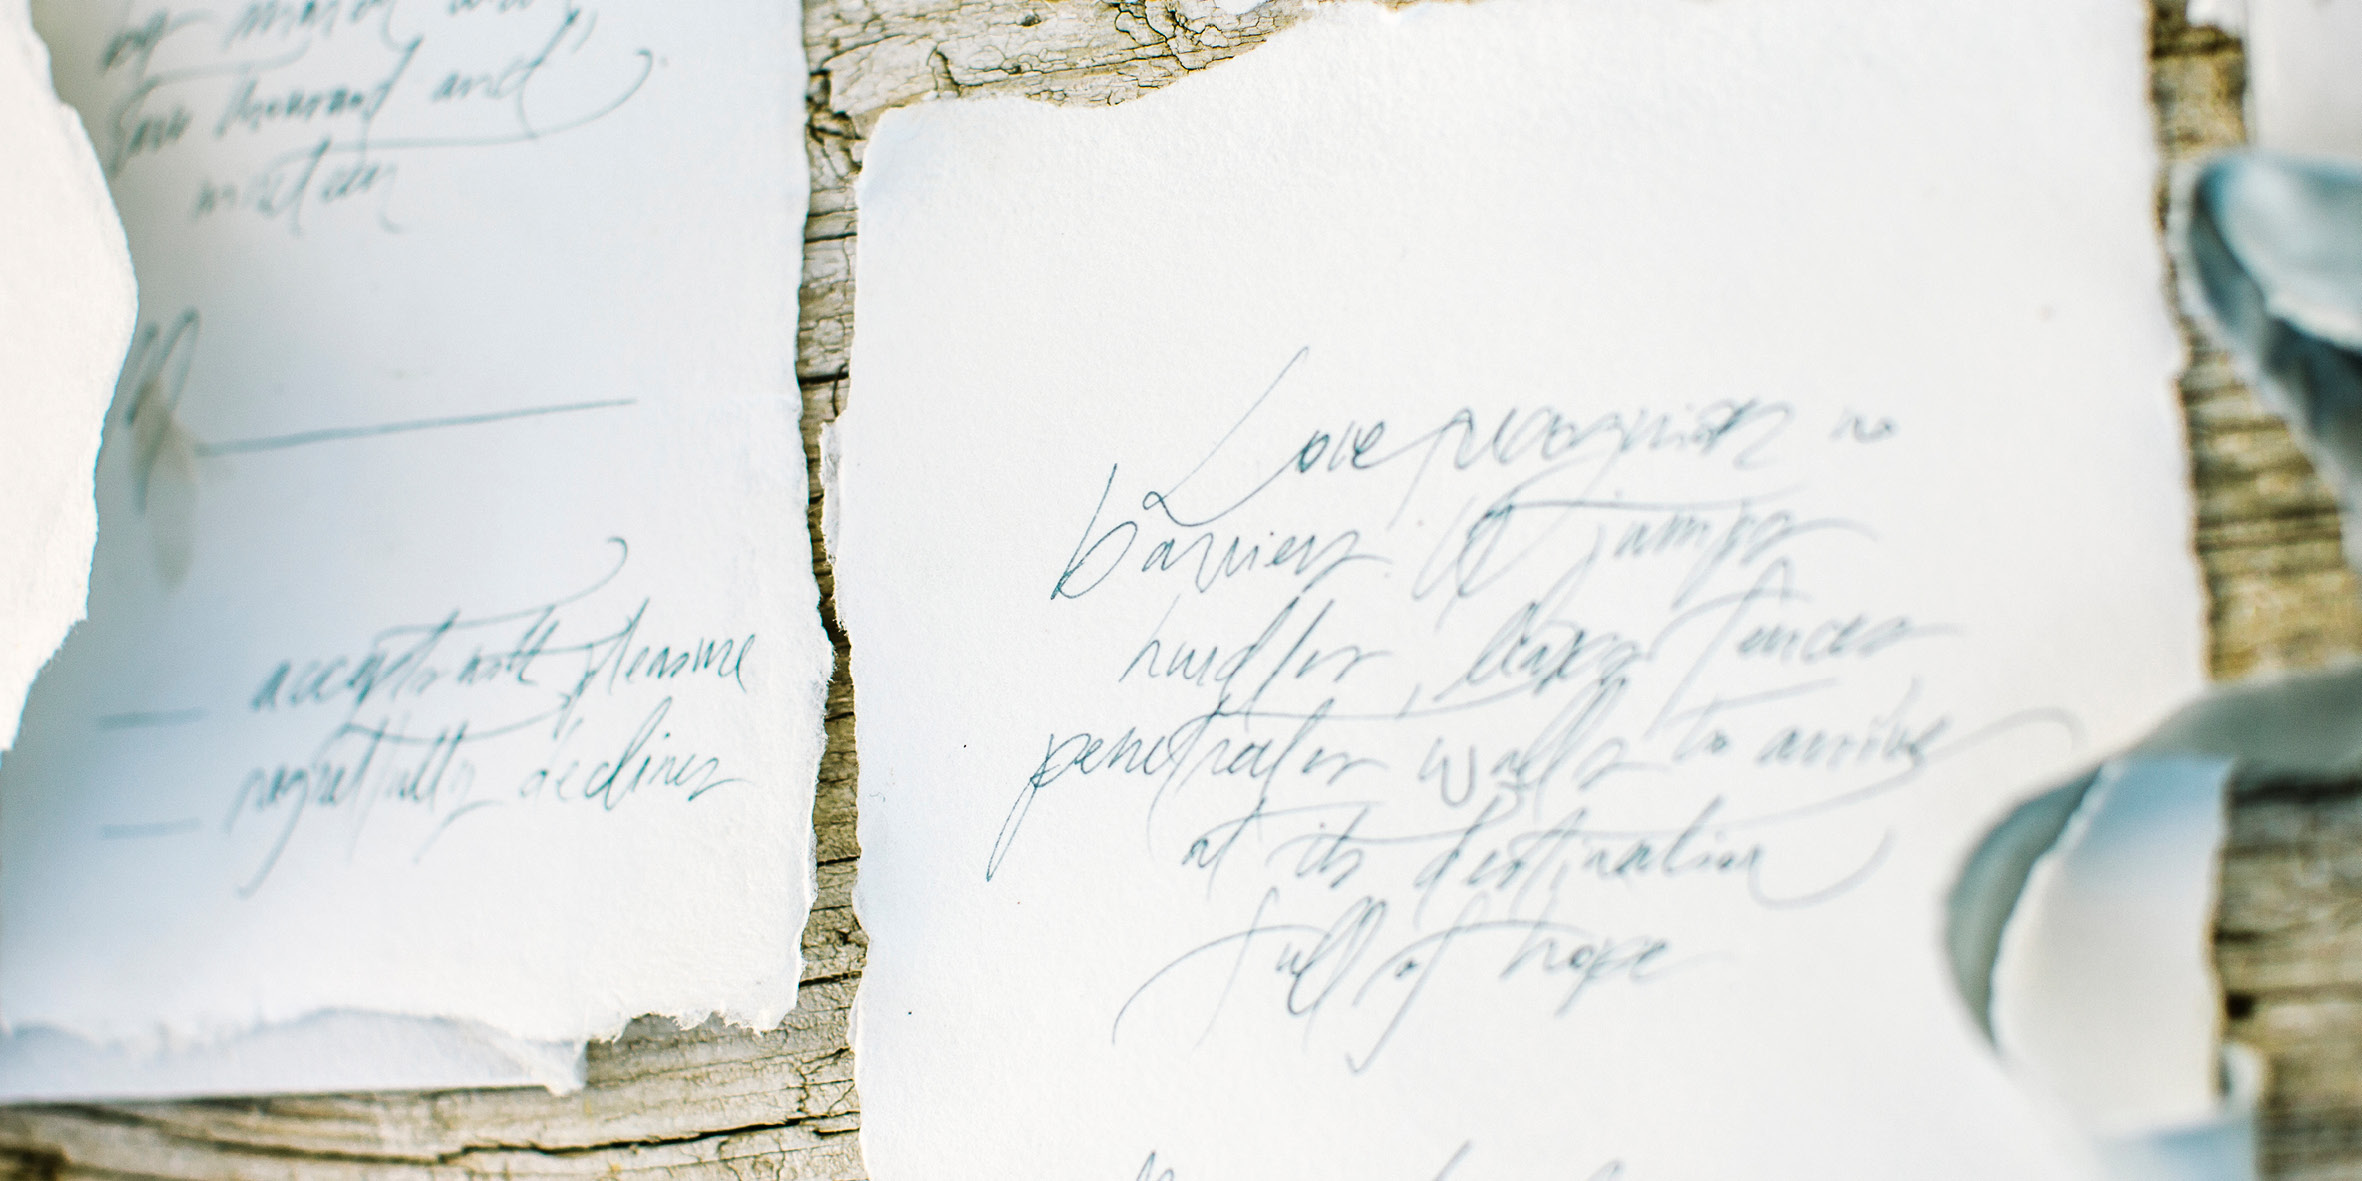 two thousand and
nineteen
M
accepts with pleasure
regretfully declines
Love recognizes no
barriers. It jumps
hurdles, leaps fences
penetrates walls to arrive
at its destination
full of hope